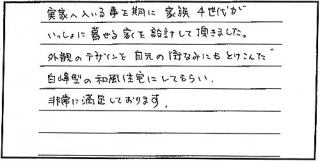 実家へ入いる事を期に 家族 4世代が
いっしょに暮せる家を設計して頂きました。
外観のデザインを 地元の街なみにもとけこんだ
白峰型の和風住宅にしてもらい、
非常に満足しております。